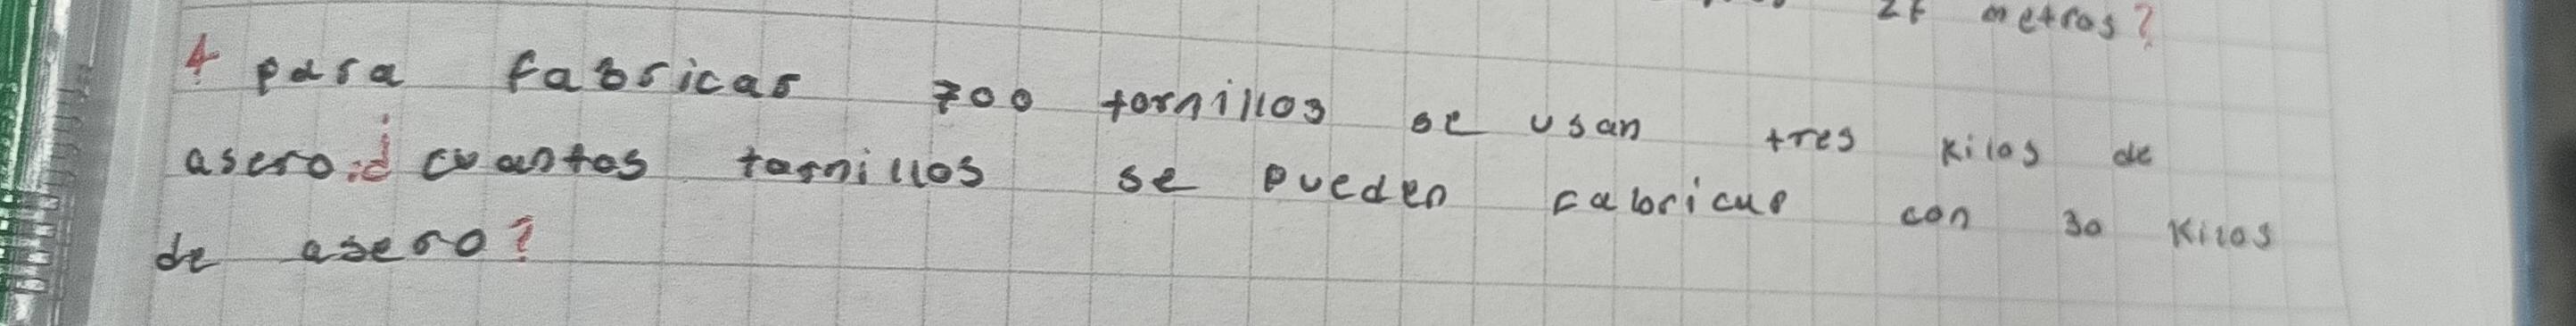 27 metros?
4 para fabricar 700 tornillos se usan tres kilos de
asero ¿ cuantos tornillos se pueden fabricar con 30 kilos
de asero?